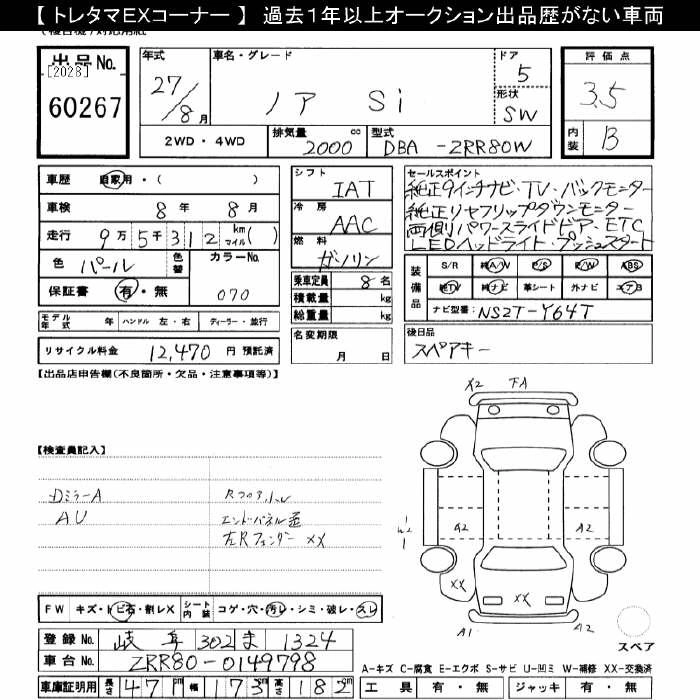 【 トレタマEXコーナー 】 過去１年以上オークション出品歴がない車両
出品 No.
[2028]
60267
年式
27/8 月
車名・グレード
ノア Si
ドア
5
形状
SW
評価点
3.5
内装
B
2WD・4WD
排気量 2000 cc
型式 DBA-ZRR80W
車歴 自家用・( )
車検 8 年 8 月
走行 9万5千312 km マイル( )
色 パール 色替
カラーNo. 070
保証書 有・無
シフト IAT
冷房 AAC
燃料 ガソリン
乗車定員 8 名
積載量 kg
総重量 kg
セールスポイント
純正9インチナビ・TV・バックモニター
純正リヤフリップダウンモニター
両側パワースライドドア・ETC
LEDヘッドライト・プッシュスタート
装備品
S/R 純A/W P/S P/W ABS
純TV 純ナビ 革シート 外ナビ エアB
ナビ型番: NSZT-Y64T
モデル年式 年 ハンドル 左・右 ディーラー・並行
リサイクル料金 12,470 円 預託済
名変期限
月 日
後日品
スペアキー
【出品店申告欄(不良箇所・欠品・注意事項等)】
【検査員記入】
Dミラー A
AU
エンドパネル
左Rフェンダー XX
X2 FA
W2
A2
A2
XX
XX
A1
A2
スペア
FW キズ・トビ石・割レX
シート内装 コゲ・穴・汚レ・シミ・破レ・スレ
登録 No. 岐阜 302 ま 1324
車台 No. ZRR80-0149798
車庫証明用 長さ 471 cm 幅 173 cm 高さ 182 cm
A-キズ C-腐食 E-エクボ S-サビ U-凹ミ W-補修 XX-交換済
工具 有・無 ジャッキ 有・無